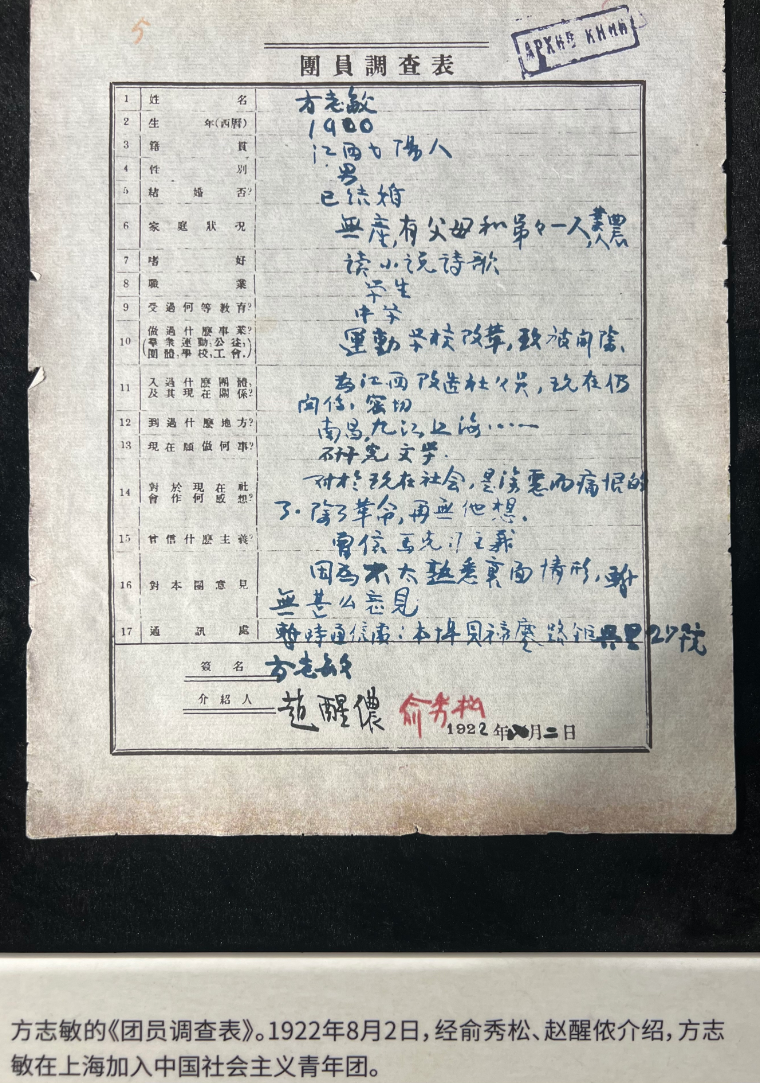 5
АРХИВ КИМИ
團員調查表
1 姓名 方志敏
2 生年(西曆) 1900
3 籍貫 江西弋陽人
4 性別 男
5 結婚否? 已结婚
6 家庭狀況 無產,有父母和弟々一人,業農
7 嗜好 读小说诗歌
8 職業 学生
9 受過何等教育? 中学
10 做過什麼事業? (羣衆運動,公徒,團體,學校,工會,) 運動学校改革,致被開除、
11 入過什麼團體,及其現在關係? 為江西改造社社員,现在仍
関係,密切
12 到過什麼地方? 南昌,九江上海……
13 現在願做何事? 研究文学.
14 對於現在社會作何感想? 对於现在社会,是深悪而痛恨的
了.除了革命,再無他想.
15 曾信什麼主義? 曾信马克主義
16 對本團意見 因為不太熟悉裏面情形,暫
無甚么意見
17 通訊處 暫時通信處:本埠貝禘鏖路 興里27號
簽名 方志敏
介紹人 趙醒儂 俞秀松
1922年八月二日
方志敏的《团员调查表》。1922年8月2日,经俞秀松、赵醒侬介绍,方志
敏在上海加入中国社会主义青年团。